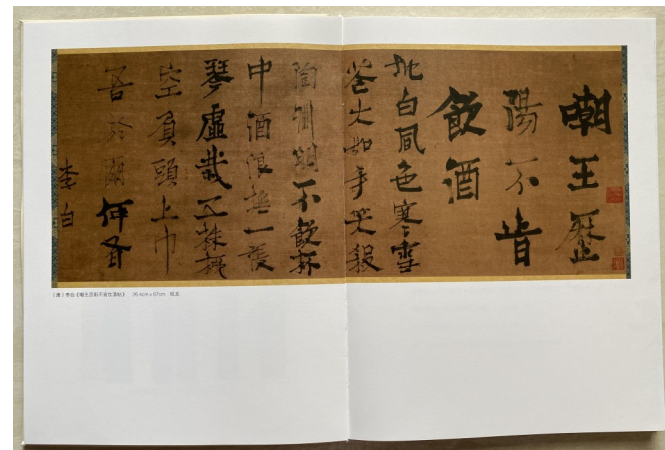 嘲王歷
陽不肯
飲酒
地白風色寒雪
花大如手笑殺
陶淵明不飲杯
中酒浪撫一張
琴虛栽五株柳
空負頭上巾
吾於爾何有
李白
(唐)李白《嘲王历阳不肯饮酒帖》 26.4cm x 67cm 纸本